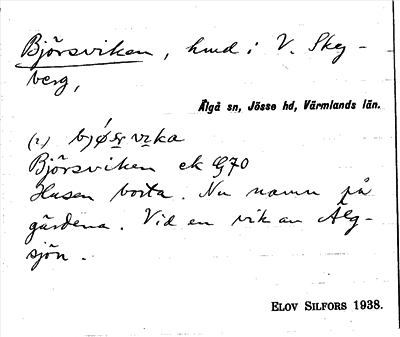 Björsviken, hmd i V. Skog-
berg,
Älgå sn, Jösse hd, Värmlands län.
(2)
Björsviken ek G70
Husen borta. Nu namn på
gärdena. Vid en vik av Älg-
sjön.
ELOV SILFORS 1938.